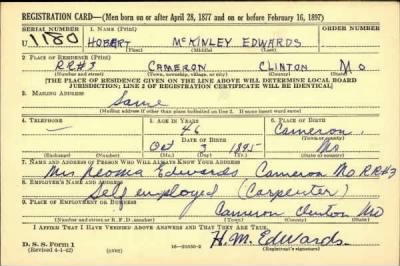 REGISTRATION CARD—(Men born on or after April 28, 1877 and on or before February 16, 1897)
SERIAL NUMBER 1. NAME (Print) ORDER NUMBER
U 1180 HOBERT McKINLEY EDWARDS
(First) (Middle) (Last)
2. PLACE OF RESIDENCE (Print)
RR#3 CAMERON CLINTON MO
(Number and street) (Town, township, village, or city) (County) (State)
[THE PLACE OF RESIDENCE GIVEN ON THE LINE ABOVE WILL DETERMINE LOCAL BOARD
JURISDICTION; LINE 2 OF REGISTRATION CERTIFICATE WILL BE IDENTICAL]
3. MAILING ADDRESS
Same
[Mailing address if other than place indicated on line 2. If same insert word same]
4. TELEPHONE 5. AGE IN YEARS 6. PLACE OF BIRTH
— 46 Cameron
DATE OF BIRTH (Town or county)
Oct 3 1895 Mo
(Exchange) (Number) (Mo.) (Day) (Yr.) (State or country)
7. NAME AND ADDRESS OF PERSON WHO WILL ALWAYS KNOW YOUR ADDRESS
Mrs Edwards Cameron Mo RR#3
8. EMPLOYER'S NAME AND ADDRESS
Self employed (Carpenter)
9. PLACE OF EMPLOYMENT OR BUSINESS
Cameron Clinton Mo
(Number and street or R. F. D. number) (Town) (County) (State)
I AFFIRM THAT I HAVE VERIFIED ABOVE ANSWERS AND THAT THEY ARE TRUE.
H.M. Edwards
D. S. S. Form 1
(Revised 4-1-42) (over) (Registrant's signature)